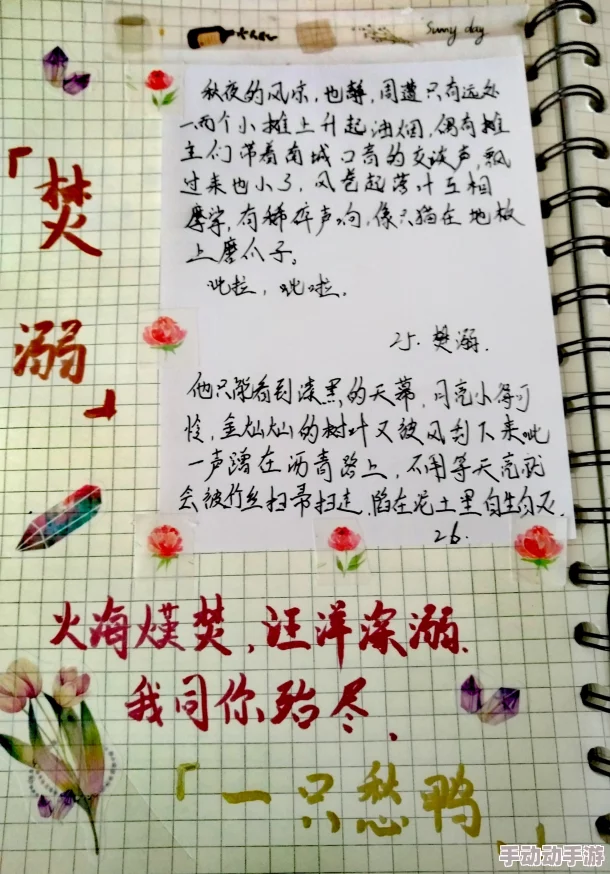 sunny day
「焚
溺」
秋夜的风凉,也静,周遭只有远处
一两个小摊上升起油烟,偶有摊
主们带着南城口音的交谈声,飘
过来也小了,风卷起落叶互相
摩挲,有稀碎声响,像只猫在地板
上磨爪子。
呲拉,呲啦。
25. 焚溺.
他只能看到漆黑的天幕,月亮小得可
怜,金灿灿的树叶又被风刮下来呲
一声蹭在沥青路上,不用等天亮就
会被竹丝扫帚扫走,陷在泥土里自生自灭.
26.
火海焚,汪洋深溺.
我同你殆尽.
「一只愁鸭」
手动动手游